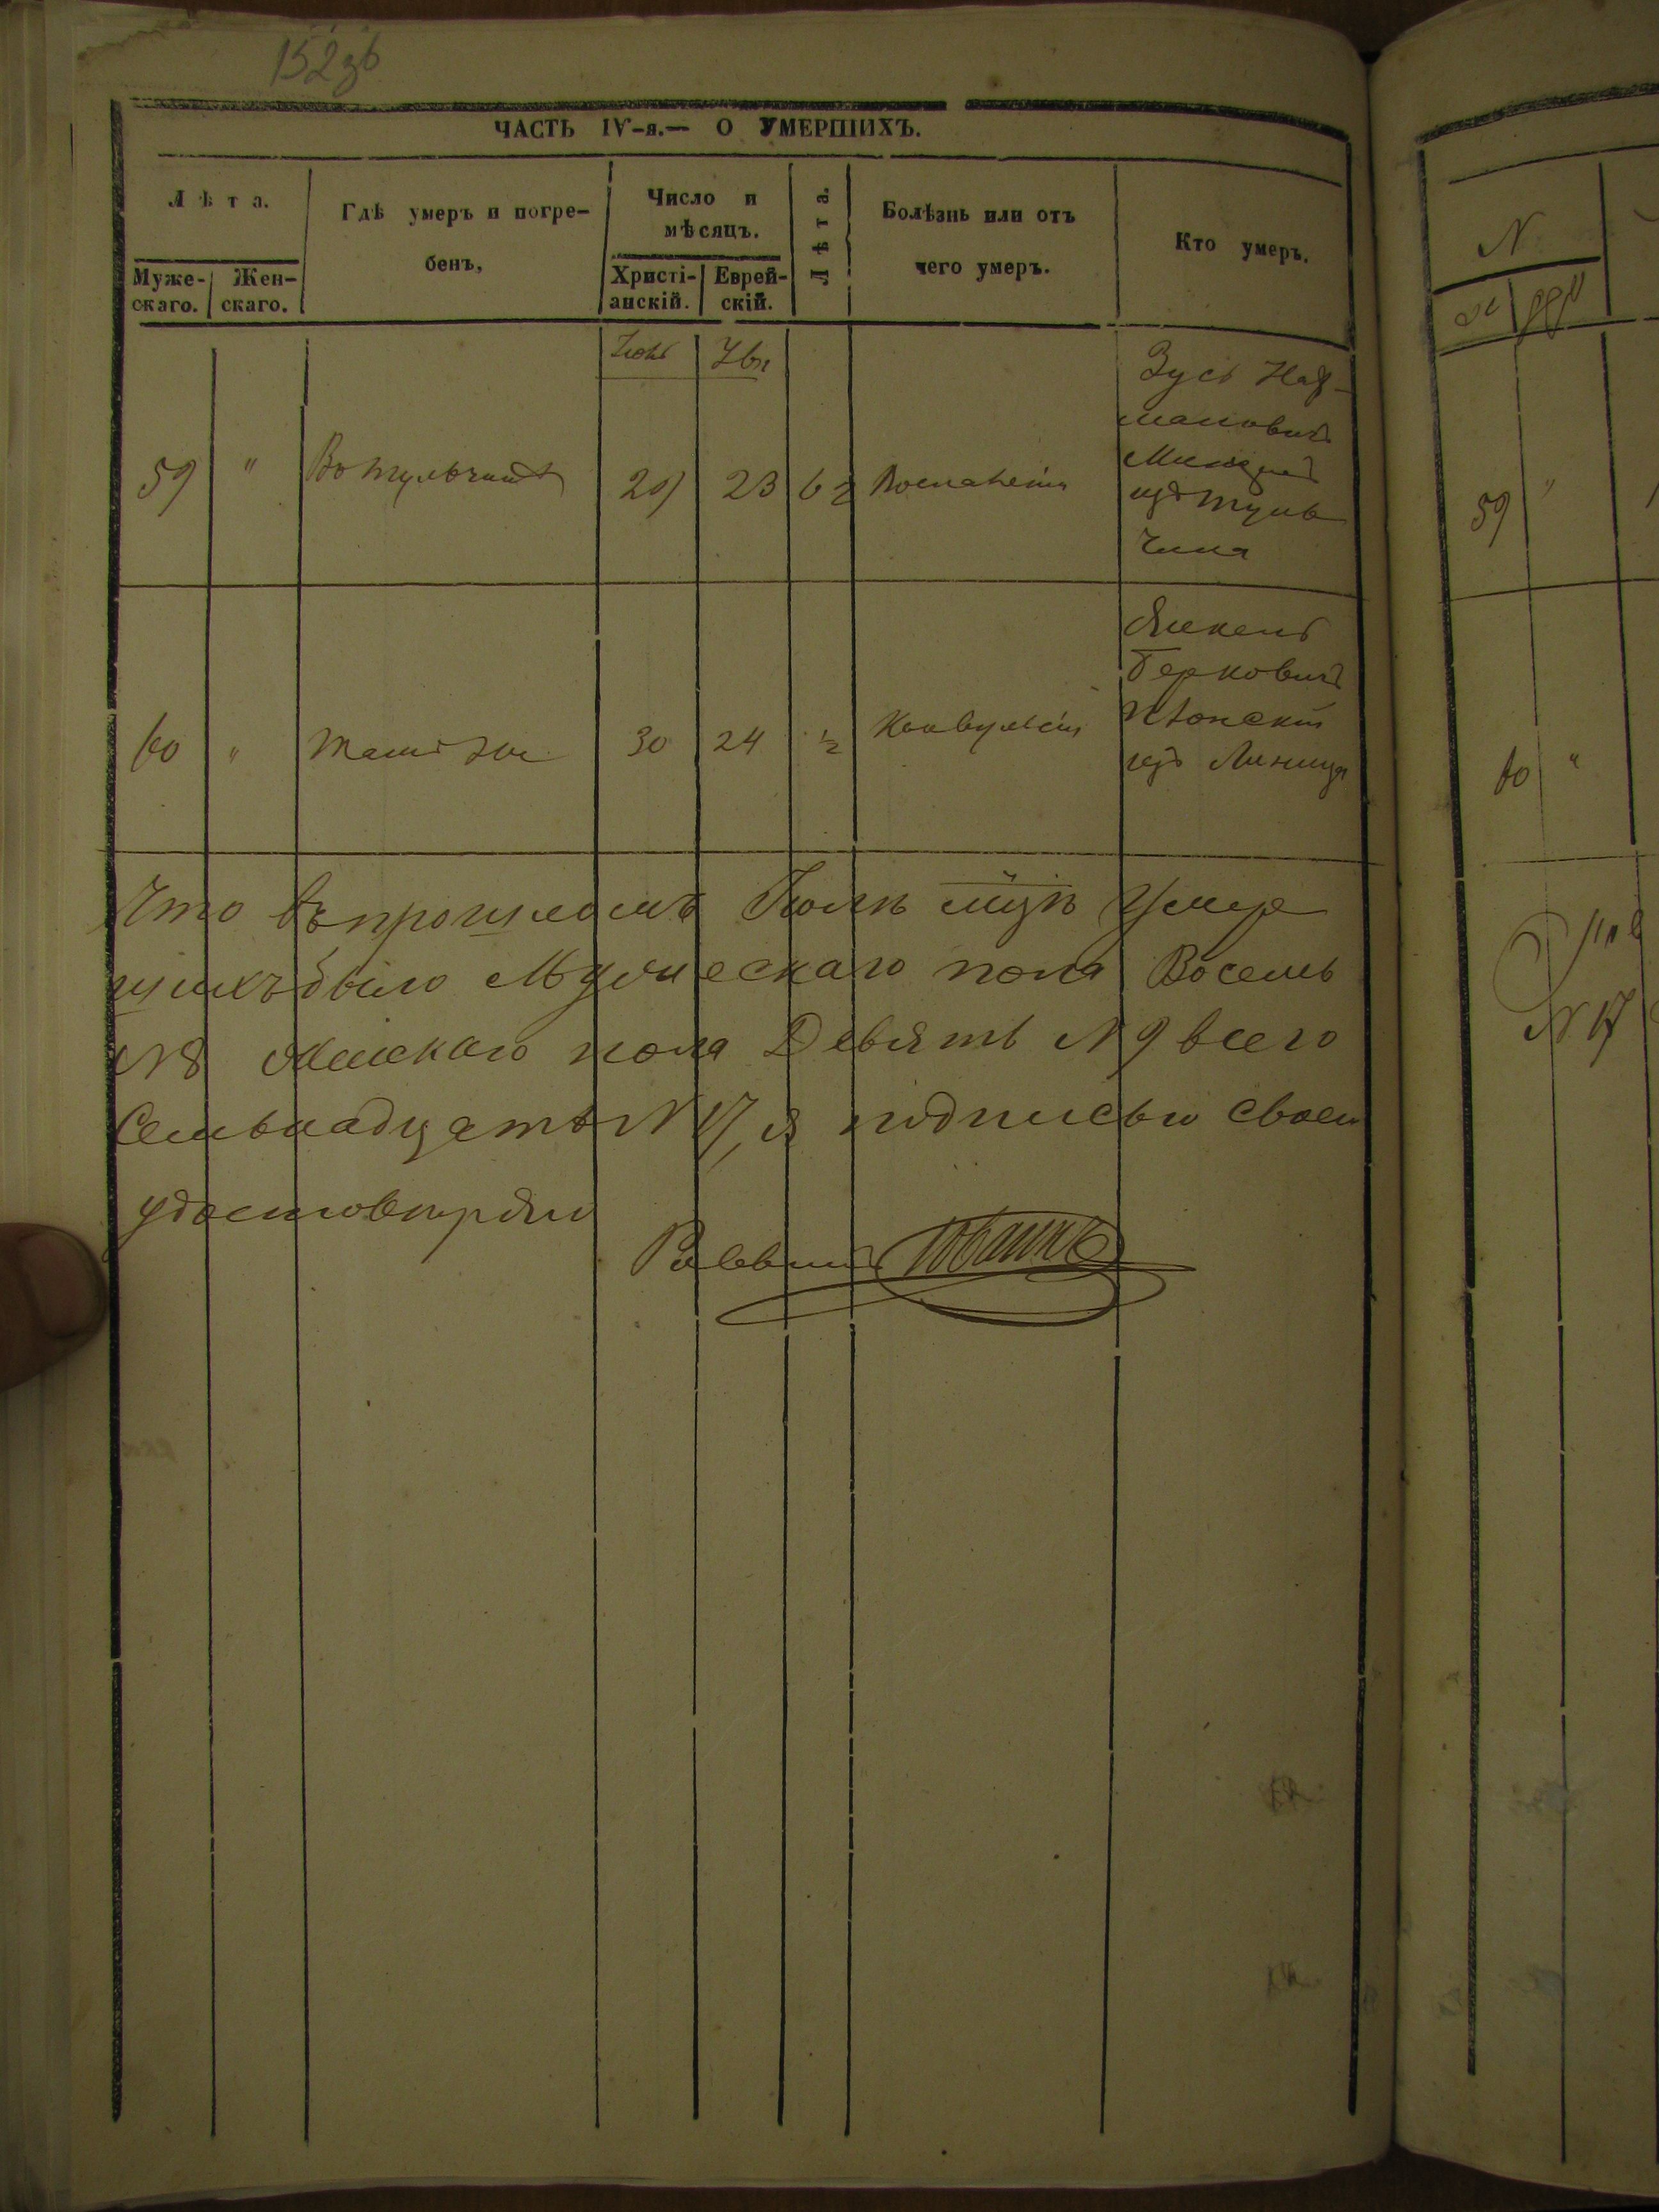 152зв
ЧАСТЬ IV-я.— О УМЕРШИХЪ.
Лѣта.
Муже-скаго.
Жен-скаго.
Гдѣ умеръ и погре-
бенъ,
Число и
мѣсяцъ.
Христі-анскій.
Еврей-скій.
Лѣта.
Болѣзнь или отъ
чего умеръ.
Кто умеръ.
59 " Во тульчинѣ 29 23 62 Воспаленія
Зусь Нах-
мановичъ
изъ туль
чина
60 " тамъ же 30 24 ½ Конвульсіи
Берковичъ
изъ Линицъ
Что въ прошломъ Іюлѣ мцѣ Умер
шихъ было Мужескаго пола Восемь
N 8 Женскаго пола Девять N 9 всего
Семьнадцать N 17, въ подписью своею
удостовѣряю
Раввинъ
N
59 "
60 "
N 17